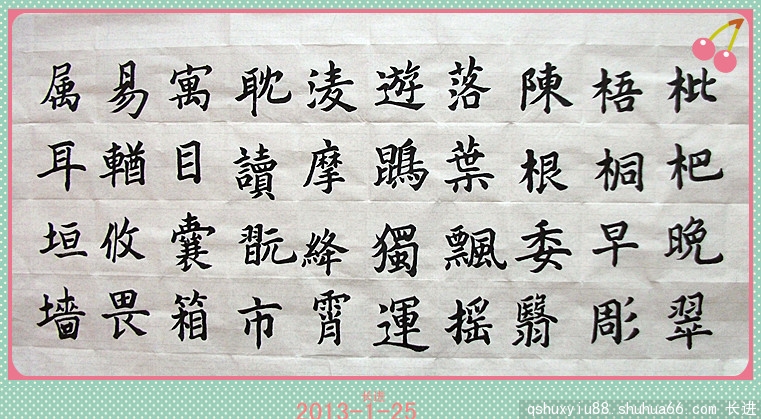 枇杷晚翠
梧桐早彫
陳根委翳
落葉飄摇
遊鵾獨運
淩摩絳霄
耽讀翫市
寓目囊箱
易輶攸畏
属耳垣墻
长进
2013-1-25
qshuxyiu88.shuhua66.com 长进